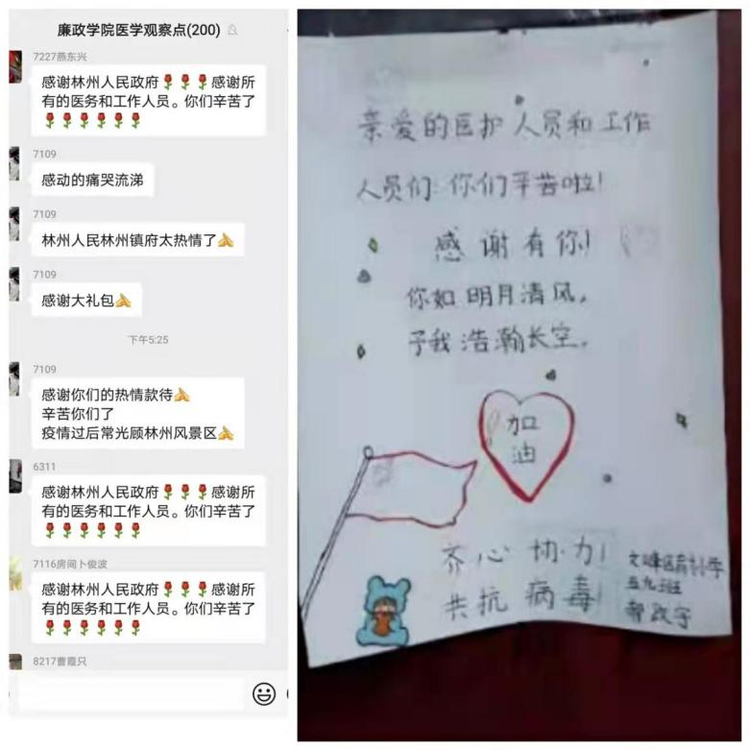 廉政学院医学观察点(200)
7227燕东兴
感谢林州人民政府🌹🌹🌹感谢所
有的医务和工作人员。你们辛苦了
🌹🌹🌹🌹🌹🌹
7109
感动的痛哭流涕
7109
林州人民林州镇府太热情了
7109
感谢大礼包
下午5:25
7109
感谢你们的热情款待
辛苦你们了
疫情过后常光顾林州风景区
6311
感谢林州人民政府🌹🌹🌹感谢所
有的医务和工作人员。你们辛苦了
🌹🌹🌹🌹🌹🌹
7116房间卜俊波
感谢林州人民政府🌹🌹🌹感谢所
有的医务和工作人员。你们辛苦了
🌹🌹🌹🌹🌹🌹
8217曹霞只
亲爱的医护人员和工作
人员们:你们辛苦啦!
感谢有你!
你如明月清风,
予我浩瀚长空。
加
油
齐心协力!
共抗病毒!
文峰区
五九班